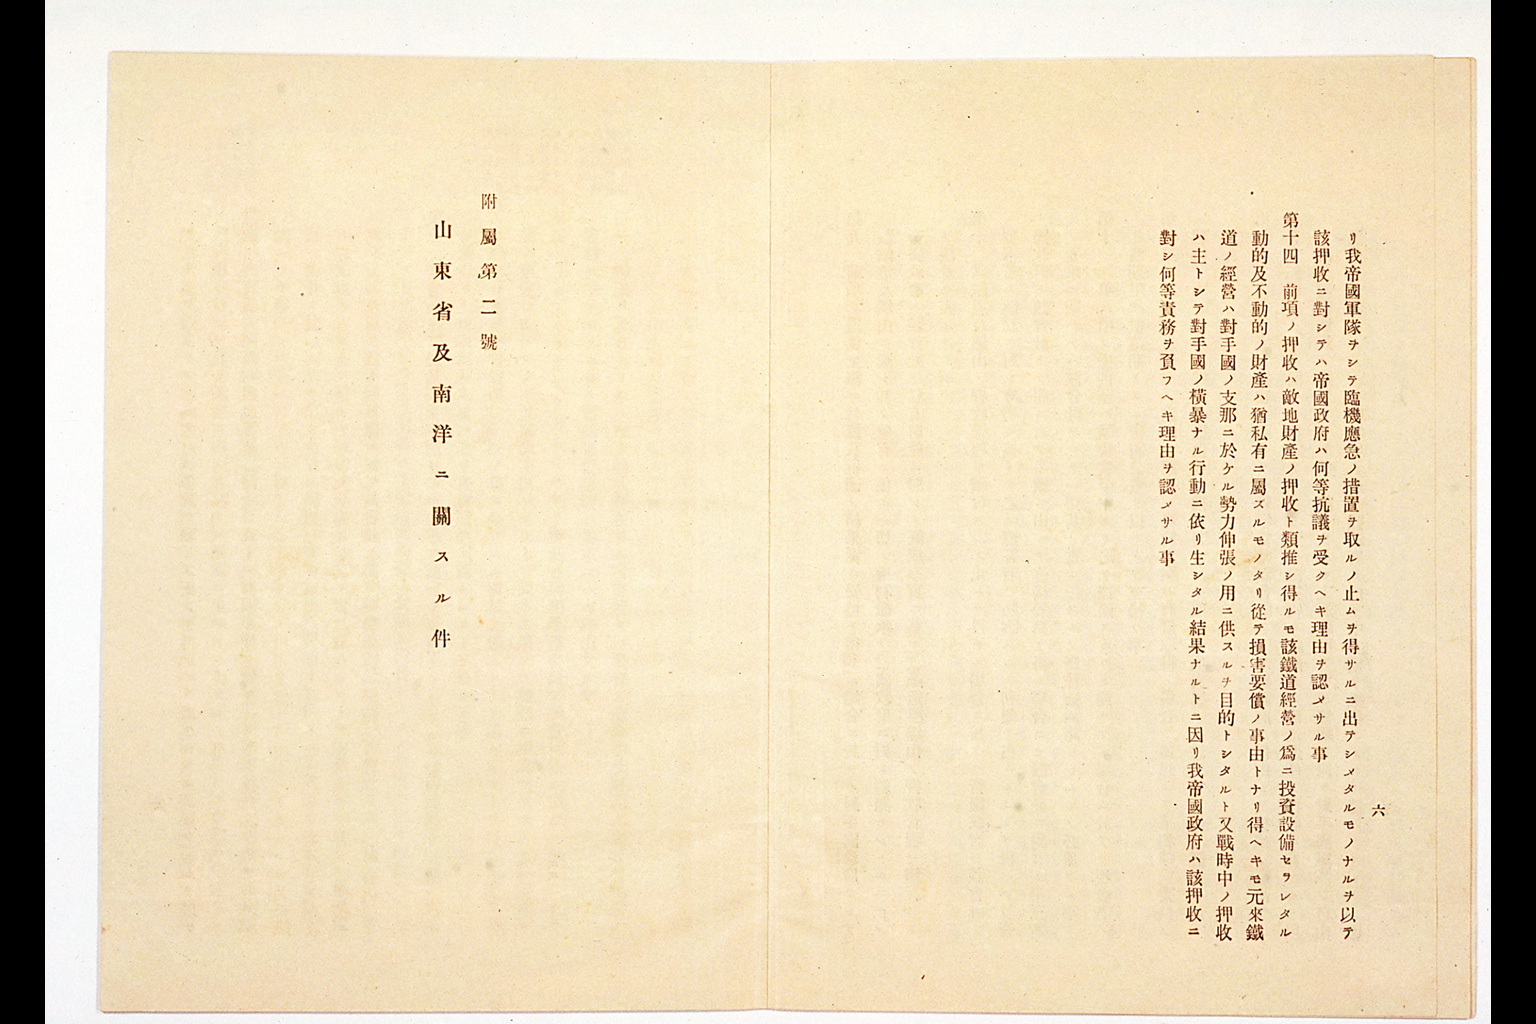 六
リ我帝國軍隊ヲシテ臨機應急ノ措置ヲ取ルノ止ムヲ得サルニ出テシメタルモノナルヲ以テ
該押收ニ對シテハ帝國政府ハ何等抗議ヲ受クヘキ理由ヲ認メサル事
第十四　前項ノ押收ハ敵地財產ノ押收ト類推シ得ルモ該鐵道經營ノ爲ニ投資設備セラレタル
動的及不動的ノ財產ハ猶私有ニ屬スルモノタリ從テ損害要償ノ事由トナリ得ヘキモ元來鐵
道ノ經營ハ對手國ノ支那ニ於ケル勢力伸張ノ用ニ供スルヲ目的トシタルト又戰時中ノ押收
ハ主トシテ對手國ノ橫暴ナル行動ニ依リ生シタル結果ナルトニ因リ我帝國政府ハ該押收ニ
對シ何等責務ヲ負フヘキ理由ヲ認メサル事
附屬第二號
山東省及南洋ニ關スル件